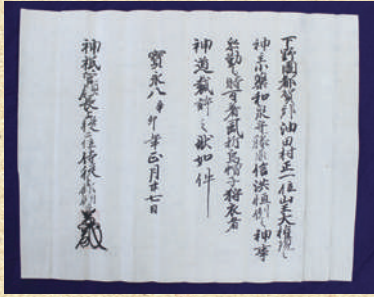 下野國都賀郡油田村正一位山王大權現之
神主小藥和泉守藤原信洪恒例之神事
参勤之時可着風折烏帽子狩衣者
神道裁許之状如件
寳永八辛卯年正月廿七日
神祇管領長上從二位侍従卜部朝臣